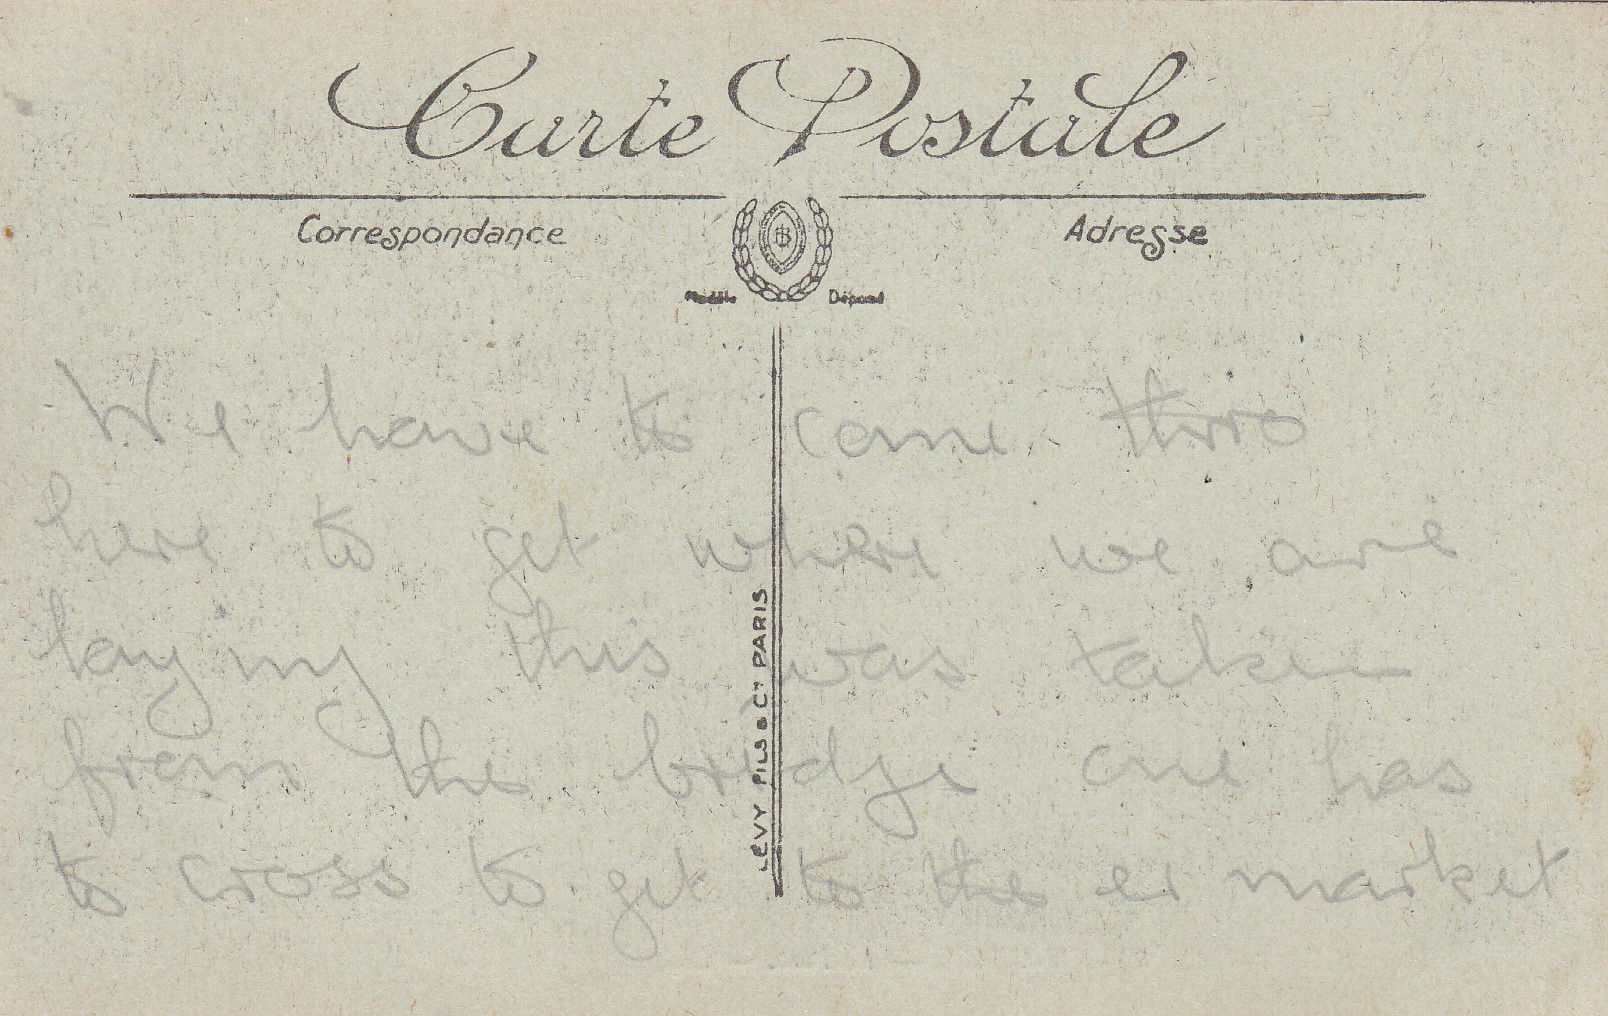 Carte Postale
Correspondance
Adresse
B
Modèle Déposé
LEVY FILS & Cie PARIS
We have to come thro
here to get where we are
laying this was taken
from the bridge one has
to cross to get to the market